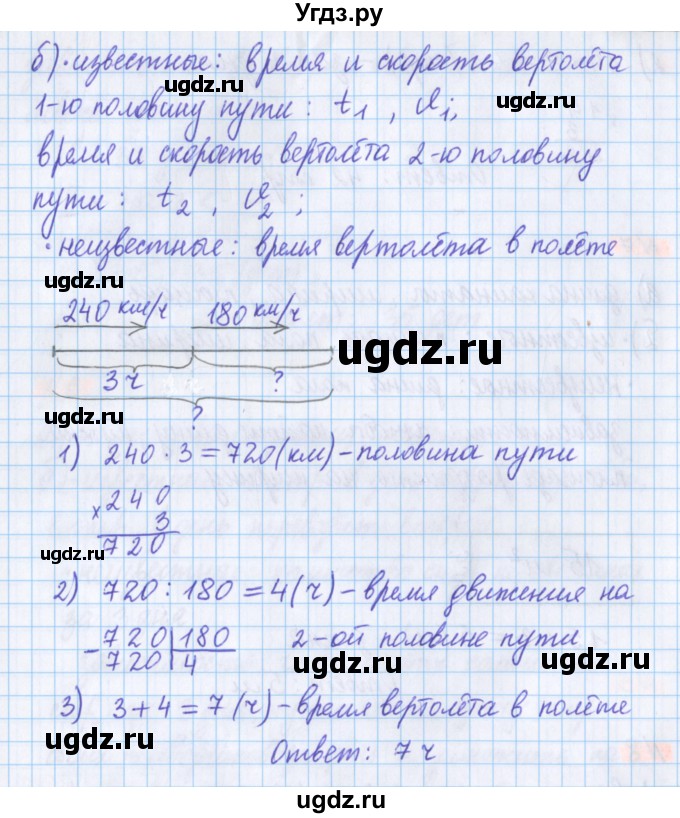 Угдз.ру
б)·известные: время и скорость вертолёта
ugdz.ru
1-ю половину пути: t₁, v₁,
ugdz.ru
время и скорость вертолёта 2-ю половину
пути: t₂, v₂;
ugdz.ru
·неизвестные: время вертолёта в полёте
ugdz.ru
240 км/ч 180 км/ч
ugdz.ru
3 ч ?
ugdz.ru
?
1) 240 · 3 = 720 (км) – половина пути
× 240
3
720
ugdz.ru
ugdz.ru
2) 720 : 180 = 4 (ч) – время движения на
2-ой половине пути
– 720 | 180
720 | 4
ugdz.ru
ugdz.ru
3) 3 + 4 = 7 (ч) – время вертолёта в полёте
ugdz.ru
ugdz.ru
Ответ: 7 ч
ugdz.ru